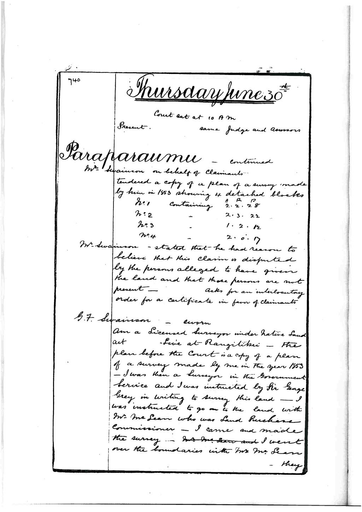 740
Thursday June 30th
Court sat at 10 AM
Present. same Judge and Assessors
Paraparaumu — continued
Mr Swainson on behalf of Claimants
tendered a copy of a plan of a survey made
by him in 1853 showing 4 detached blocks
A R P
No 1 containing 2. 2. 28
No 2 " 2. 3. 22
No 3 " 1. 2. 12
No 4 " 2. 0. 17
Mr Swainson - stated that he had reason to
believe that this claim is disputed
by the persons alleged to have given
the land and that those persons are not
present — Asks for an interlocutory
order for a certificate in favor of Claimants
G. F. Swainson — sworn
Am a Licensed Surveyor under Native Land
Act Live at Rangitikei — the
plan before the Court is a copy of a plan
of a survey made by me in the year 1853
— I was then a Surveyor in the Government
Service and I was instructed by Sir George
Grey in writing to survey this land — I
was instructed to go on to the land with
Mr. McLean who was Land Purchase
Commissioner — I came and made
the survey — Mr McLean and I went
over the boundaries with Mr McLean
— they